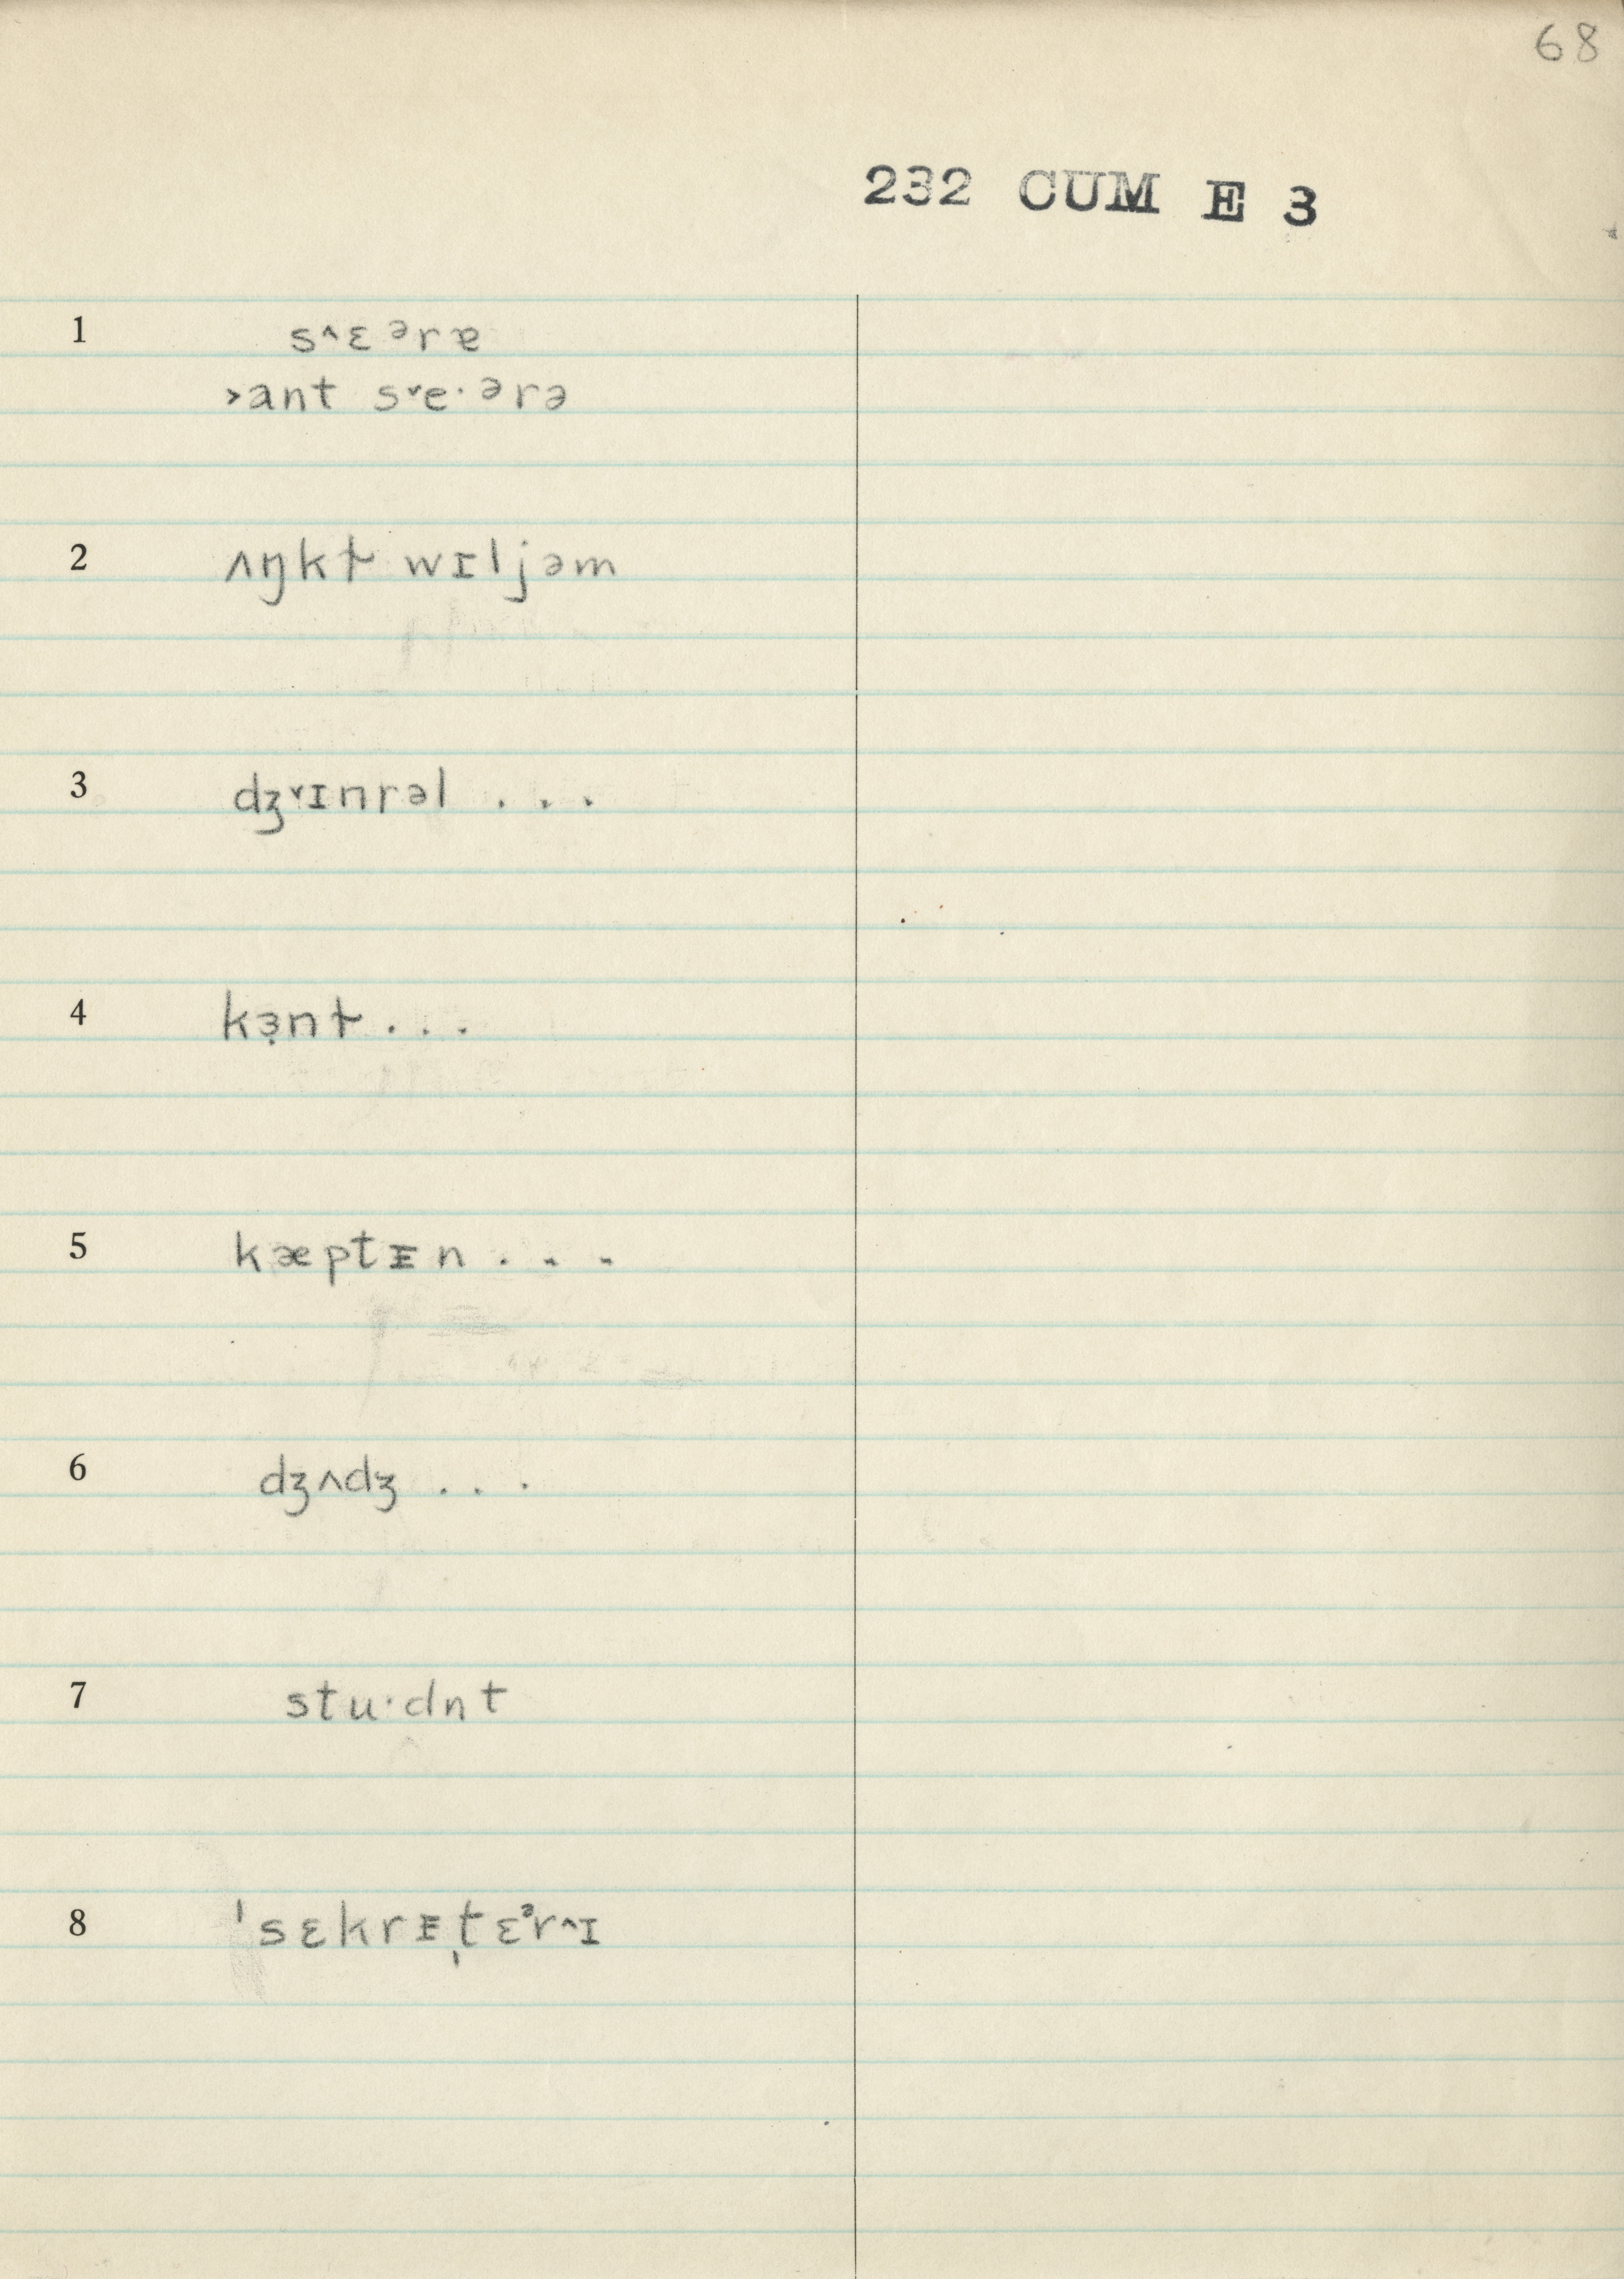 68
232 CUM E 3
1 s˄ɛᵊrɐ
˃ant s˅e·ᵊrə
2 ʌŋkɫ wɪljəm
3 dʒ˅ɪnrəl . . .
4 kɜ̣nɫ . . .
5 kæptᵻn . . .
6 dʒʌdʒ . . .
7 stu·dnt
8 ˈsɛkrᵻˌtɛᵊr˄ɪ